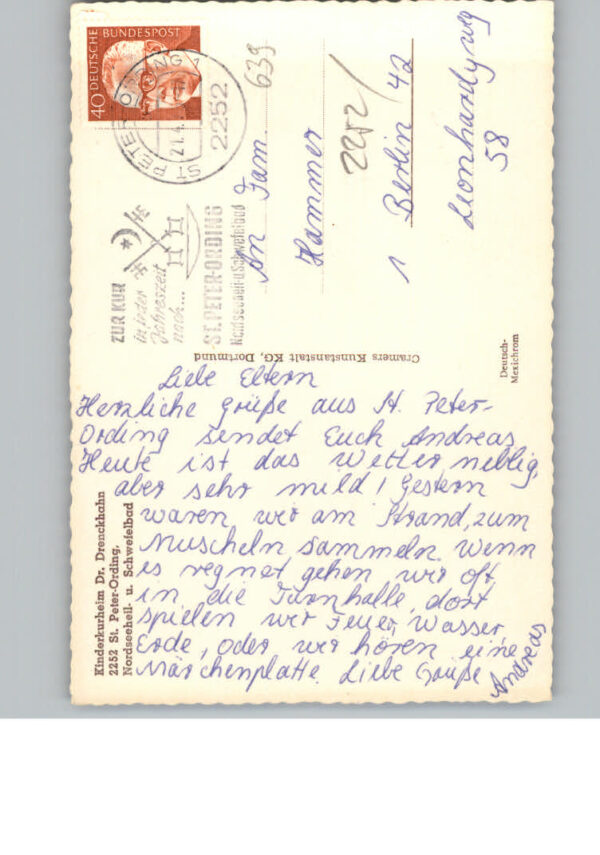 40 DEUTSCHE BUNDESPOST
ST. PETER-ORDING 1
21.4.
2252
ZUR KUR
in jeder
Jahreszeit
nach...
ST. PETER-ORDING
Nordseeheil-u Schwefelbad
639
2252/
An Fam.
Hammer
1 Berlin 42
Leonhardyweg
58
Cramers Kunstanstalt KG, Dortmund
Deutsch-
Mexichrom
Liebe Eltern
Herzliche Grüße aus St. Peter-
Ording sendet Euch Andreas
Heute ist das Wetter neblig,
aber sehr mild! Gestern
waren wir am Strand, zum
Muscheln sammeln. Wenn
es regnet gehen wir oft
in die Turnhalle, dort
spielen wir Feuer, Wasser,
Erde, oder wir hören eine
Märchenplatte. Liebe Grüße
Andreas
Kinderkurheim Dr. Drenckhahn
2252 St. Peter-Ording,
Nordseeheil- u. Schwefelbad